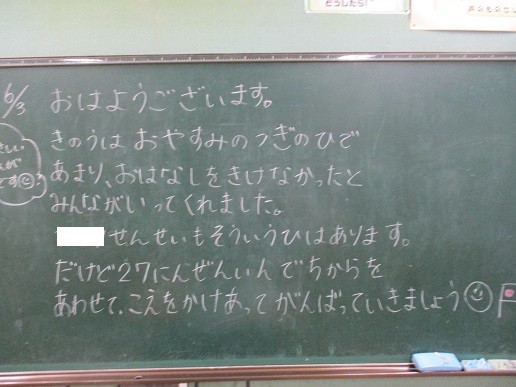 どうしたら!
6/3
おはようございます。
きのうは おやすみのつぎのひで
あまり、おはなしをきけなかったと
みんながいってくれました。
せんせいもそういうひはあります。
だけど27にんぜんいんでちからを
あわせて、こえをかけあってがんばっていきましょう